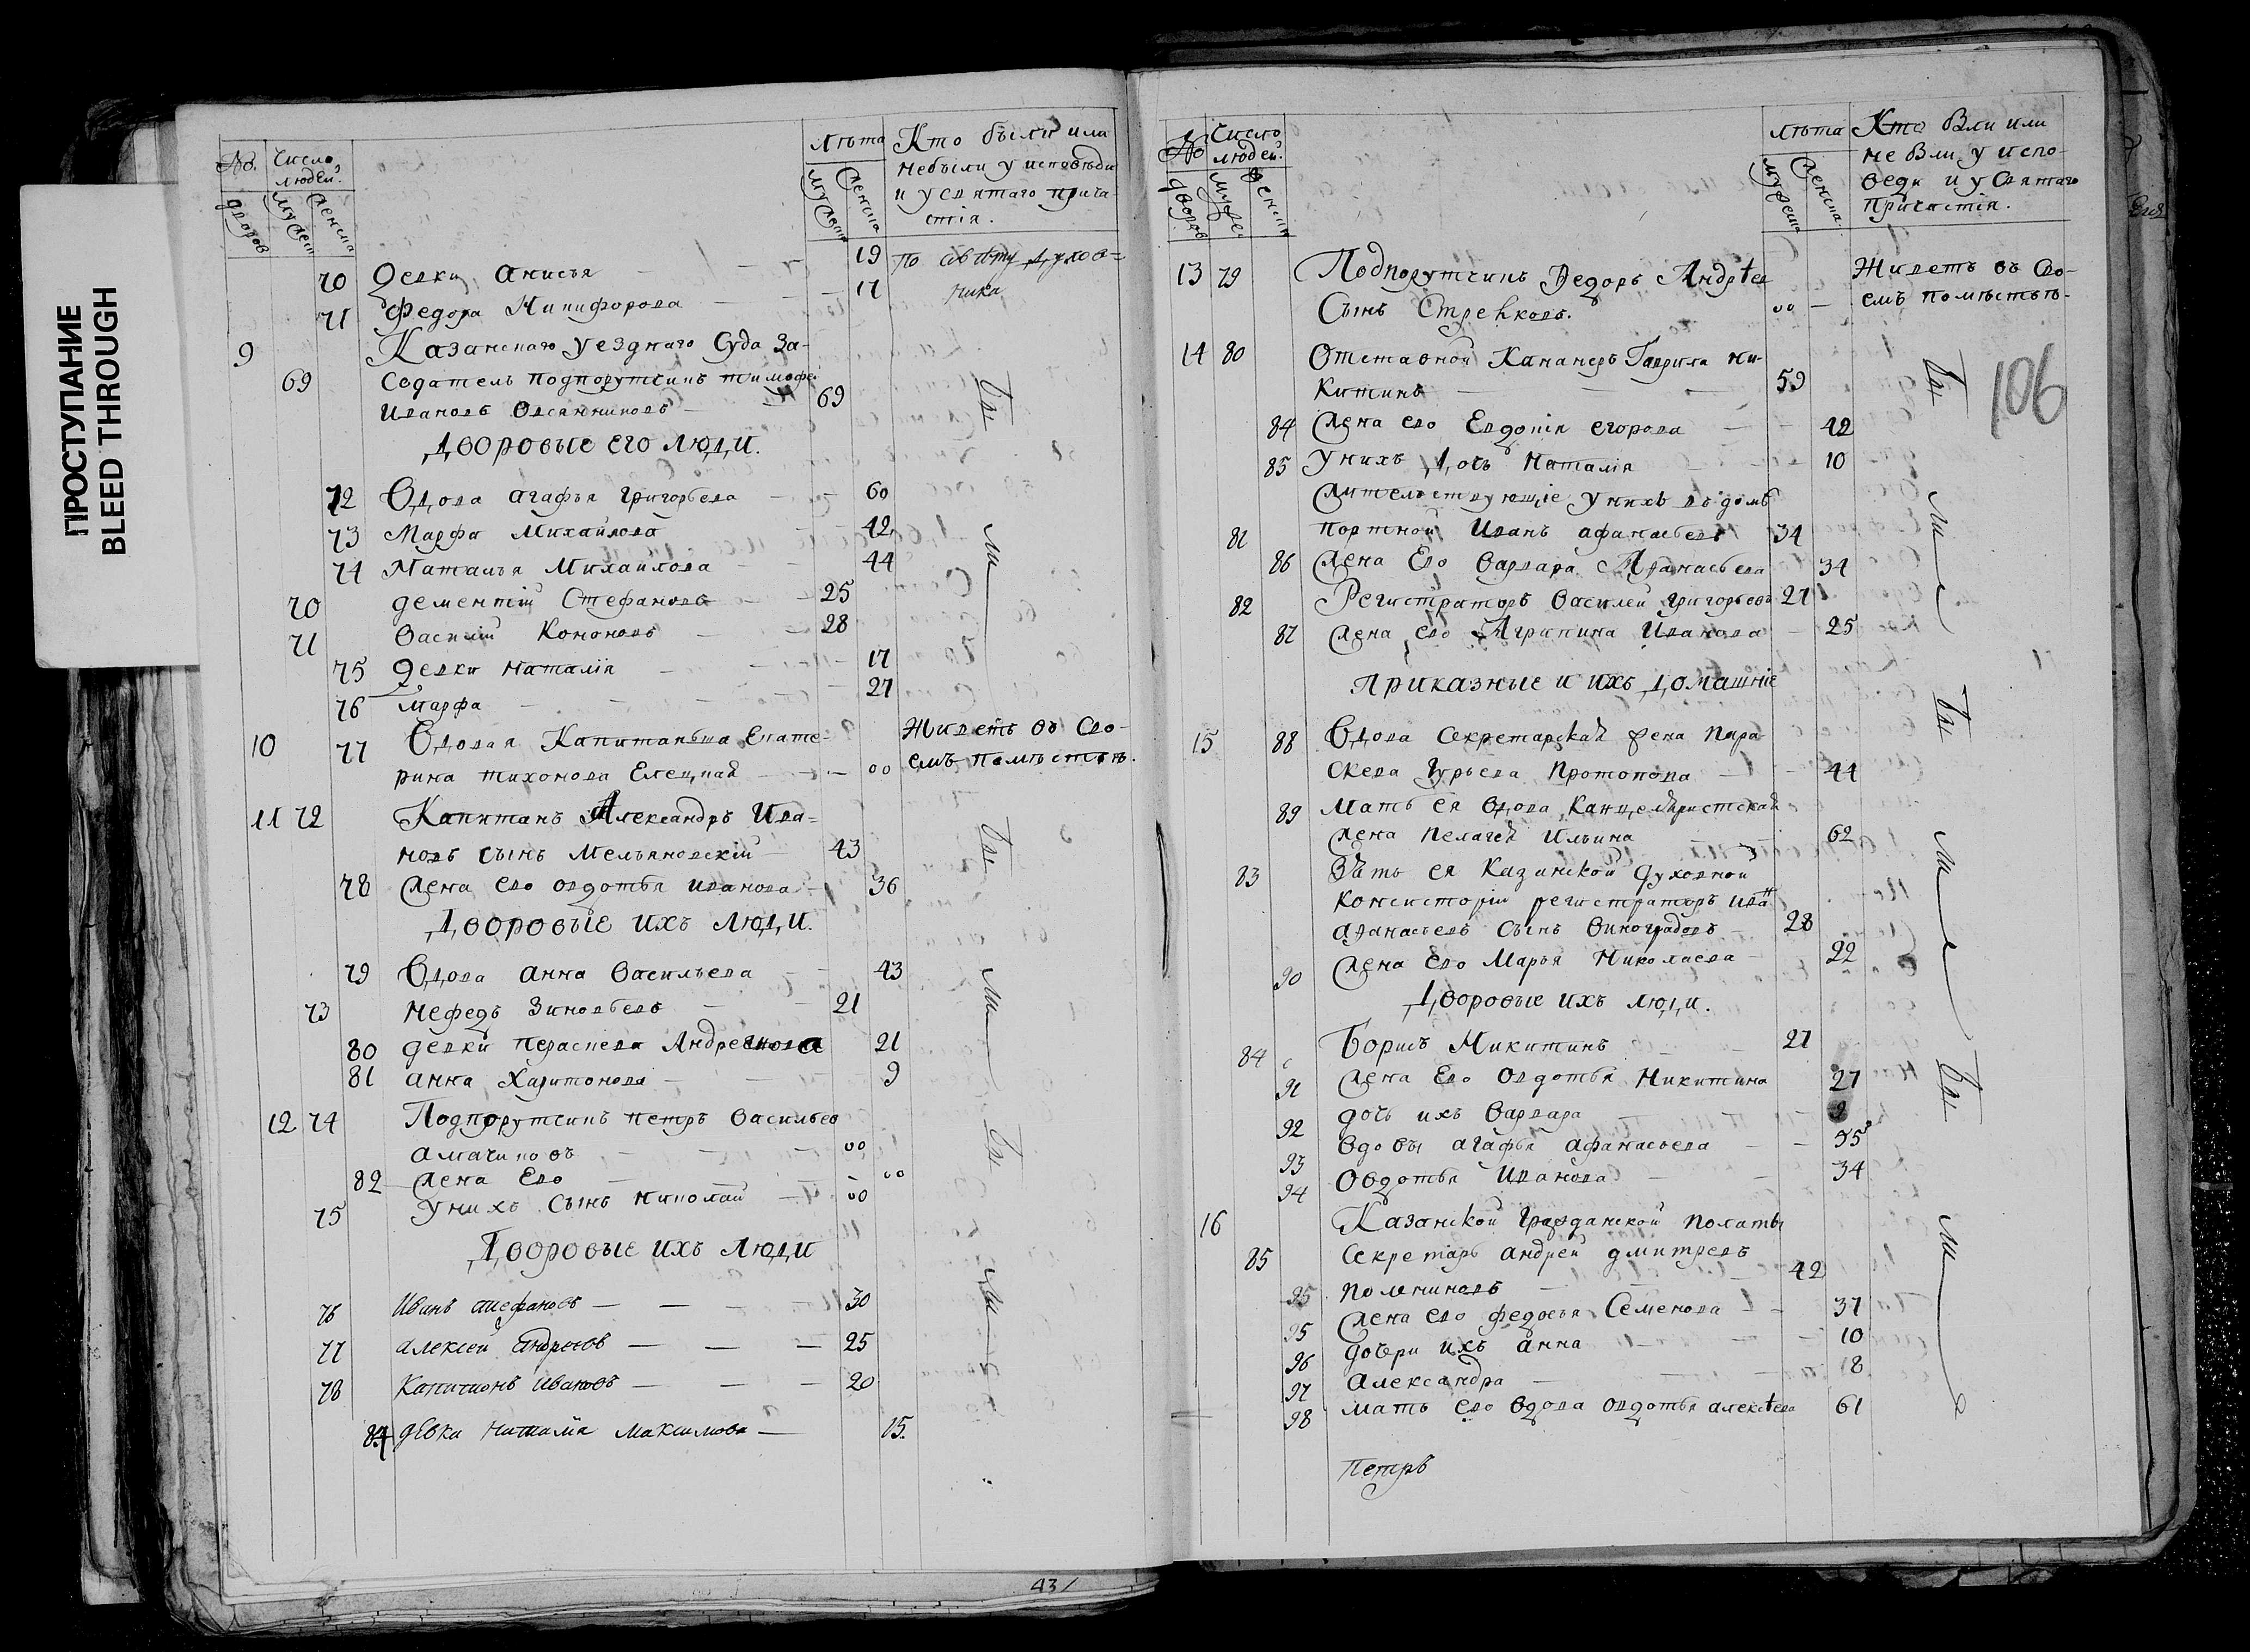 ПРОСТУПАНИЕ
BLEED THROUGH
No. Число людей.
дворов
мужеск
женска
лѣта
мужеска
женска
Кто были или
небыли у исповѣди
и у святаго прича-
стія.
70 Девки Анисья 19 по совѣту духов=
71 Федора Никифорова 17 ника
9 Казанскаго уезднаго Суда За-
69 Седатель подпорутчикъ тимофеи
Ивановъ Овсянниковъ 69 бы
Дворовые его люди.
72 Вдова агафья Григорьева 60
73 Марфа Михайлова 42
74 Наталья Михайлова 44 ли
70 дементій Стефановъ 25
71 Василій Кононовъ 28
75 Девки Наталія 17
76 Марфа 27
10 77 Вдовая Капитанъша Екате- Живетъ въ Сво-
рина тихонова Елецкая 00 емъ поместьѣ.
11 72 Капитанъ Александръ Ива=
новъ сынъ Мельяновскій 43 бы
78 жена ево овдотья иванова 36
Дворовые ихъ люди.
79 Вдова анна Васильева 43
73 Нефедъ Зиновьевъ 21 ли
80 девки Пераскева Андреянова 21
81 анна Харитонова 9
12 74 Подпорутчикъ петръ Васильев
00 бы
82 жена Ево 00
75 у нихъ сынъ николай 00
Дворовые ихъ люди
76 Иванъ 30 ли
77 алексеи Андреевъ 25
78 Капитонъ Ивановъ 20
84 девка Наталія Максимова 15.
43
No Число людей.
дворов
мужес
женска
лѣта
мужеска
женска
Кто Бли или
не Бли у испо-
веди и у Святаго
Причастія.
13 79 Подпорутчикъ Федоръ Андрѣев Живетъ въ Сво-
Сынъ Стрелковъ. 00 емъ поместьѣ.
14 80 Отставной Кананеръ Гаврила Ни-
Китинъ 59 бы
106
84 жена ево Евдокія егорова 42
85 у нихъ дочь Наталія 10
жительствующіе у нихъ въ домѣ
81 портной Иванъ афанасьевъ 34 ли
86 жена Ево Варвара Афанасьева 34
82 Регистраторъ Василей Григорьевъ 27
87 жена ево Агрипина Иванова 25
Приказные и ихъ домашніе
15 88 Вдова Секретарская жена Пара бы
скева Гурьева Протопопова 44
89 Мать ея Вдова Канцеляристская
жена Пелагея Ильина 62 ли
83 Зять ея Казанской Духовной
Консисторіи регистраторъ Иван
афанасьевъ сынъ Виноградовъ 28
90 жена Ево Марья Николаева 22
Дворовые ихъ люди.
84 Борисъ Микитинъ 27
91 жена Ево Овдотья Никитина 27 бы
92 дочь ихъ Варвара
93 Вдовы агафья афанасьева 35
94 Овдотья Иванова 34
16 Казанской Гражданской Полаты ли
85 Секретарь андреи дмитревъ 42
95
95 жена ево федосья Семенова 37
96 дочери ихъ анна 10
97 Александра 8
98 мать ево Вдова Овдотья алексѣева 61
Петръ